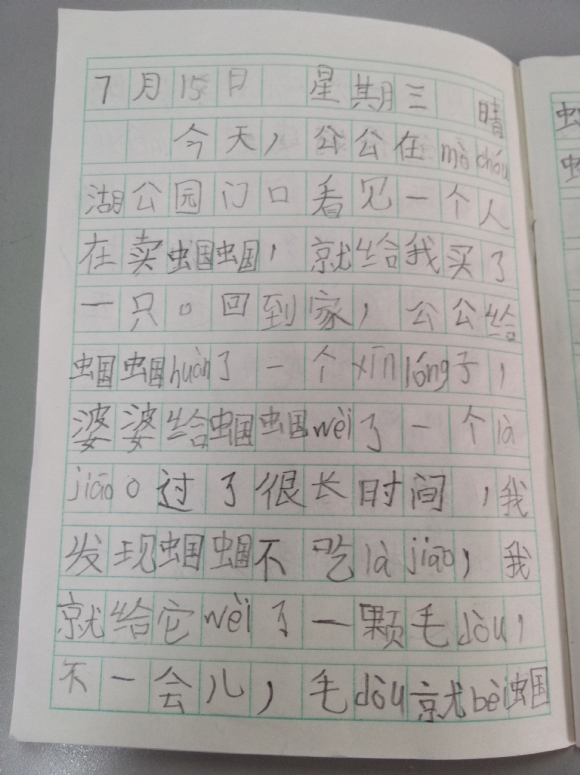 7月15日 星期三 晴
今天，公公在mò chóu
湖公园门口看见一个人
在卖蝈蝈，就给我买了
一只。回到家，公公给
蝈蝈huàn了一个xīn lóng子，
婆婆给蝈蝈wèi了一个là
jiāo。过了很长时间，我
发现蝈蝈不吃là jiāo，我
就给它wèi了一颗毛dòu，
不一会儿，毛dòu就bèi蝈